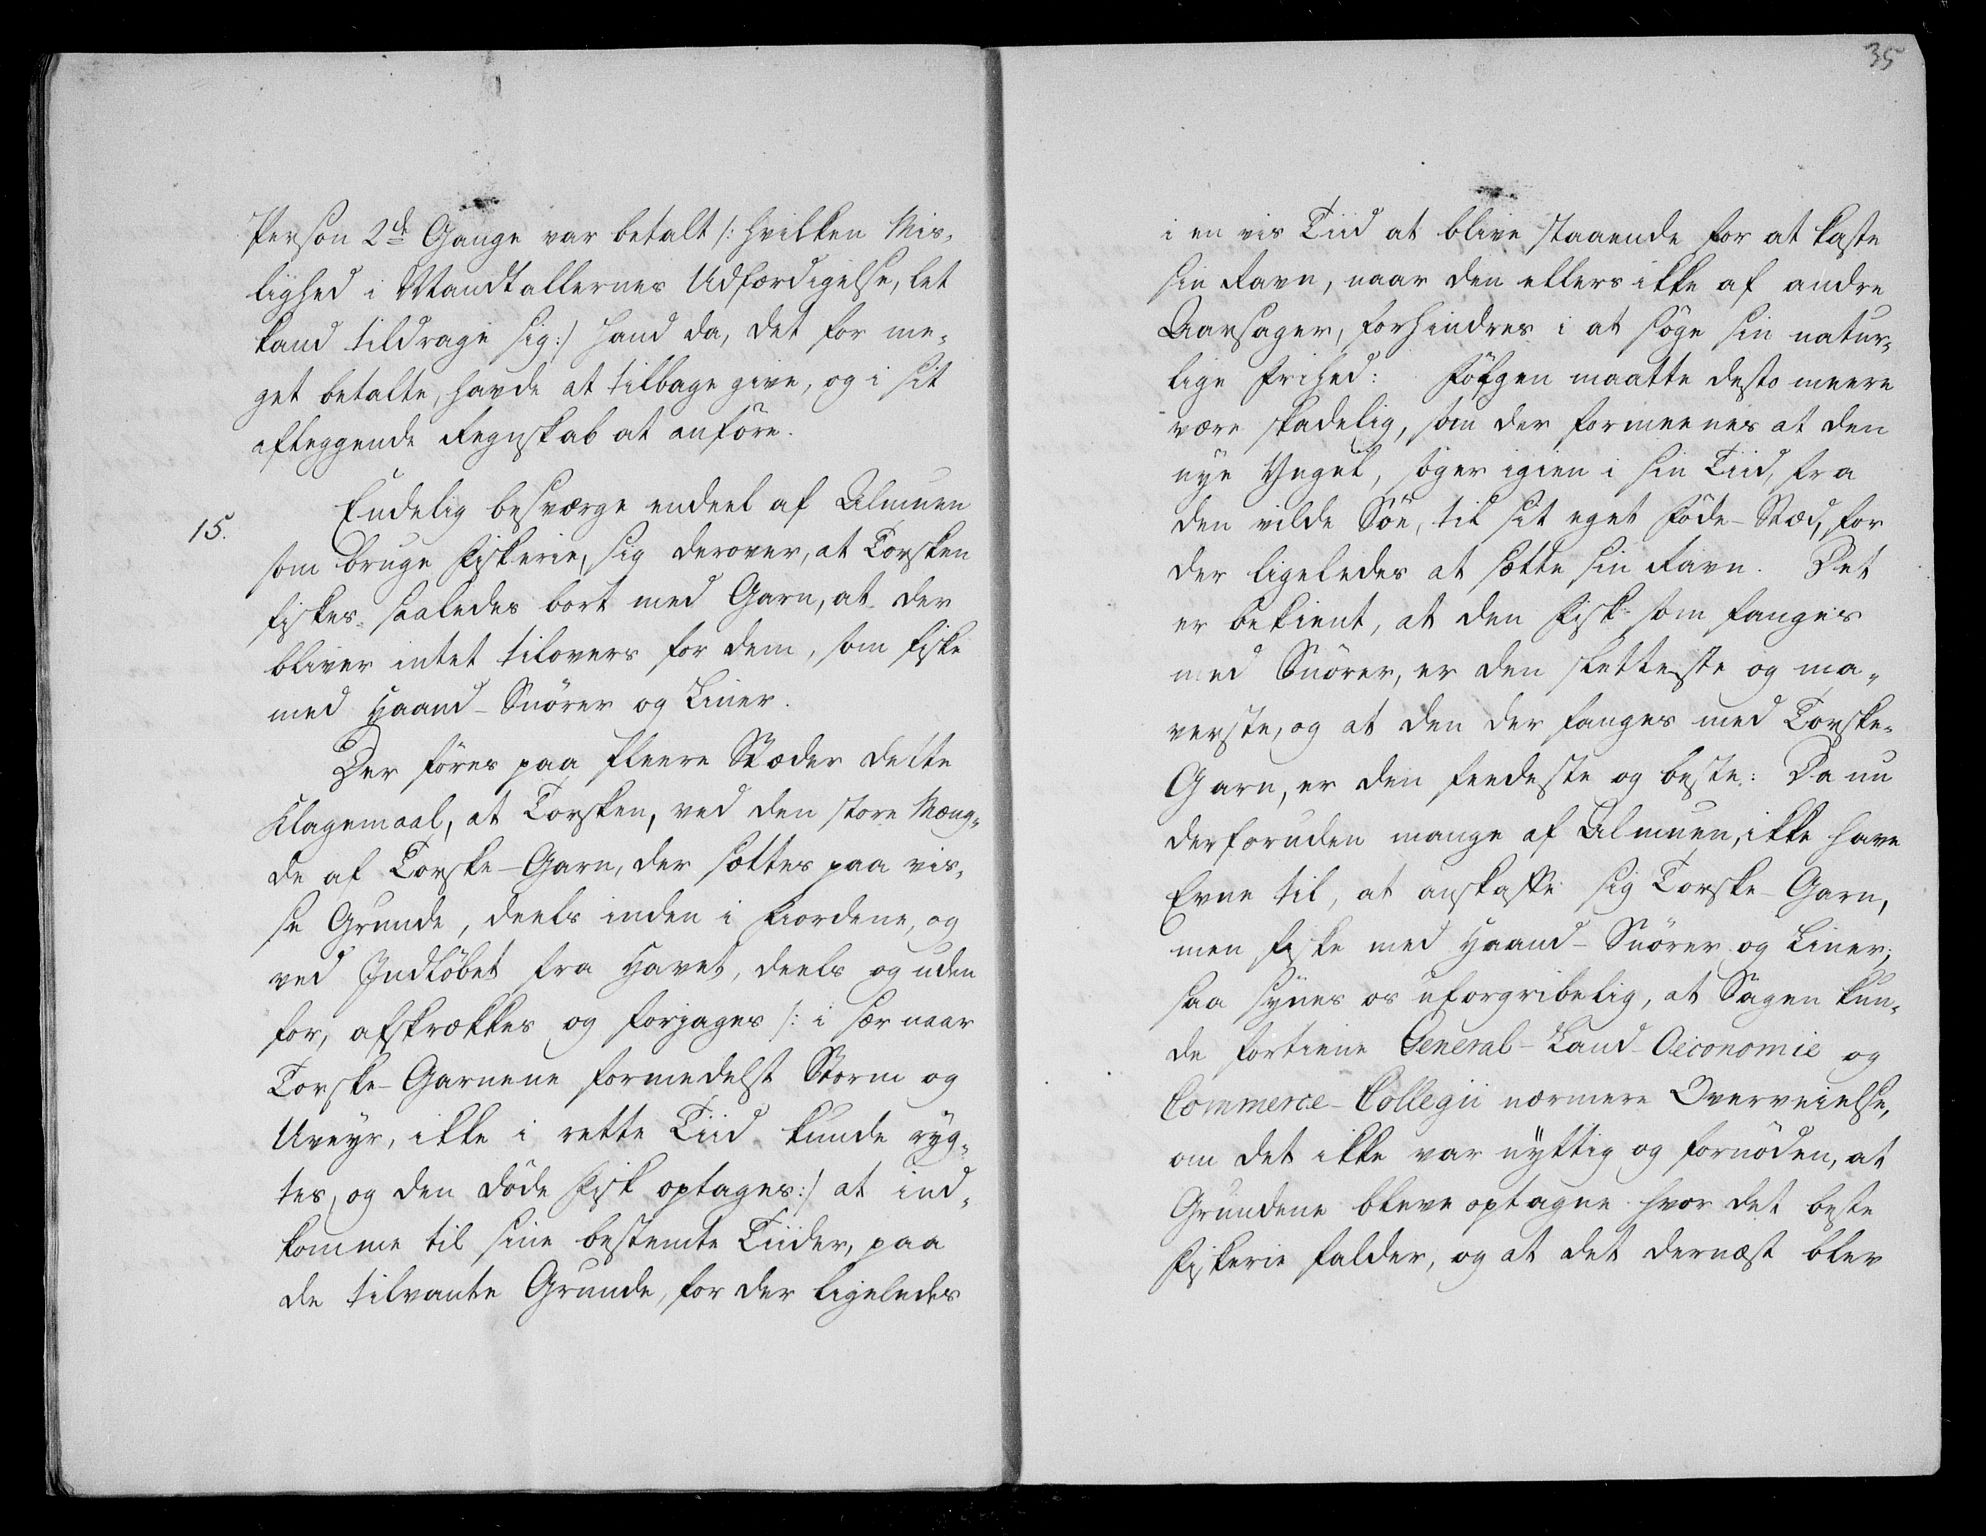 Person 2de Gange var betalt /: hvilken Mis,
lighed i Mandtallernes Udfærdigelse, let
kand tildrage sig :/ hand da, det for me,
get betalte, havde at tilbage give, og i sit
afleggende Regnskab at anföre.
15.
Endelig besværge endeel af Almuen
som bruge Fiskerie, sig derover, at Torsken
fiskes saaledes bort med Garn, at der
bliver intet tilovers for dem, som fiske
med Haand-Snörer og Liner.
Der föres paa fleere Stæder dette
Klagemaal, at Torsken, ved den store Mæng,
de af Torske-Garn, der sættes paa vis,
se Grunde, deels inden i Fiordene, og
ved Indlöbet fra Havet, deels og uden
for, afskrækkes og forjages /: i sær naar
Torske-Garnene formedelst Storm og
Uveyr, ikke i rette Tiid kunde ryg,
tes, og den döde Fisk optages :/ at ind,
komme til sine bestemte Tiider, paa
de tilvante Grunde, for der ligeledes
35
i en vis Tiid at blive staaende for at kaste
sin Ravn, naar den ellers ikke af andre
Aarsager, forhindres i at söge sin natur,
lige Frihed: Fölgen maatte desto meere
være skadelig, som der formeenes at den
nye Yngel, söger igien i sin Tiid, fra
den vilde Söe, til sit eget Föde-Stæd, for
der ligeledes at sætte sin Ravn. Det
er bekient, at den Fisk som fanges
med Snörer, er den sletteste og ma,
verste, og at den der fanges med Torske-
Garn, er den feedeste og beste: Da nu
derforuden mange af Almuen, ikke have
Evne til, at anskaffe sig Torske-Garn,
men fiske med Haand-Snörer og Liner;
saa synes os uforgribelig, at Sagen kun,
de fortiene General-Land-Oeconomie og
Commerce-Collegii nærmere Overveielse,
om det ikke var nyttig og fornöden, at
Grundene bleve optagne hvor det beste
Fiskerie falder, og at det dernæst blev